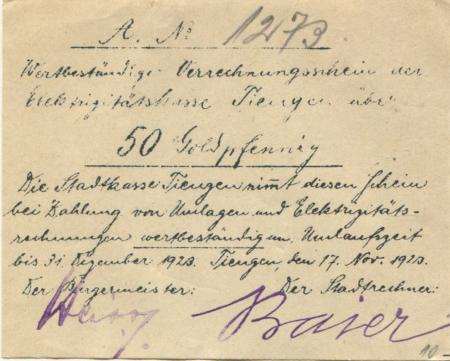 A. No 1273.
Wertbeständige Verrechnungsschein der
Elektrizitätskasse Tiengen über
50 Goldpfennig
Die Stadtkasse Tiengen nimmt diesen Schein
bei Zahlung von Umlagen und Elektrizitäts-
rechnungen wertbeständig an. Umlaufszeit
bis 31 Dezember 1923. Tiengen, den 17. Nov. 1923.
Der Bürgermeister: Der Stadtrechner:
Baier
10.-